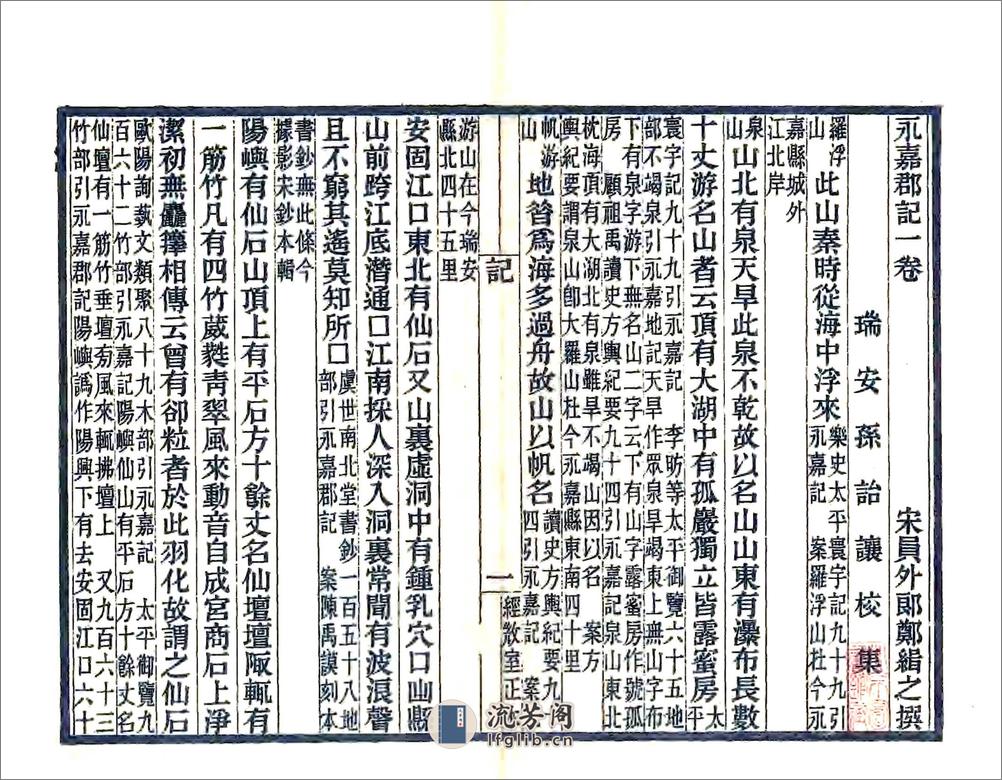 永嘉郡記一卷　宋員外郎鄭緝之撰
瑞安孫詒讓校集
羅浮山此山秦時從海中浮來樂史太平寰宇記九十九引
永嘉記　案羅浮山杜今永
嘉縣城外
江北岸
泉山北有泉天旱此泉不乾故以名山山東有瀑布長數
十丈游名山者云頂有大湖中有孤巖獨立皆露蜜房太平
寰宇記九十九引永嘉記　李昉等太平御覽六十五地
部不竭泉引永嘉地記天旱作眾泉旱竭東上無山字布
下有泉字游下無名山二字云下有山字露蜜房作號孤
房　顧祖禹讀史方輿紀要九十四引永嘉記泉山東北
枕海頂有大湖北有泉雖旱不竭山因以名　案方
輿紀要謂泉山卽大羅山杜今永嘉縣東南四十里
帆游山地昔爲海多過舟故山以帆名讀史方輿紀要九
四引永嘉記　案
記　一
經㪚室正
游山在今瑞安
縣北四十五里
安固江口東北有仙石又山裏虛洞中有鍾乳穴口出縣
山前跨江底潛通口江南採人深入洞裏常聞有波浪聲
且不窮其遙莫知所口虞世南北堂書鈔一百五十八地
部引永嘉郡記　案陳禹謨刻本
書鈔無此條今
據影宋鈔本輯
陽嶼有仙石山頂上有平石方十餘丈名仙壇壇陬輒有
一筋竹凡有四竹葳蕤靑翠風來動音自成宮商石上淨
潔初無麤籜相傳云曾有卻粒者於此羽化故謂之仙石
歐陽詢藝文類聚八十九木部引永嘉記　太平御覽九
百六十二竹部引永嘉記陽嶼仙山有平石方十餘丈名
仙壇有一筋竹垂壇㫄風來輒拂壇上　又九百六十三
竹部引永嘉郡記陽嶼譌作陽興下有去安固江口六十
流芳阁
lfglib.cn